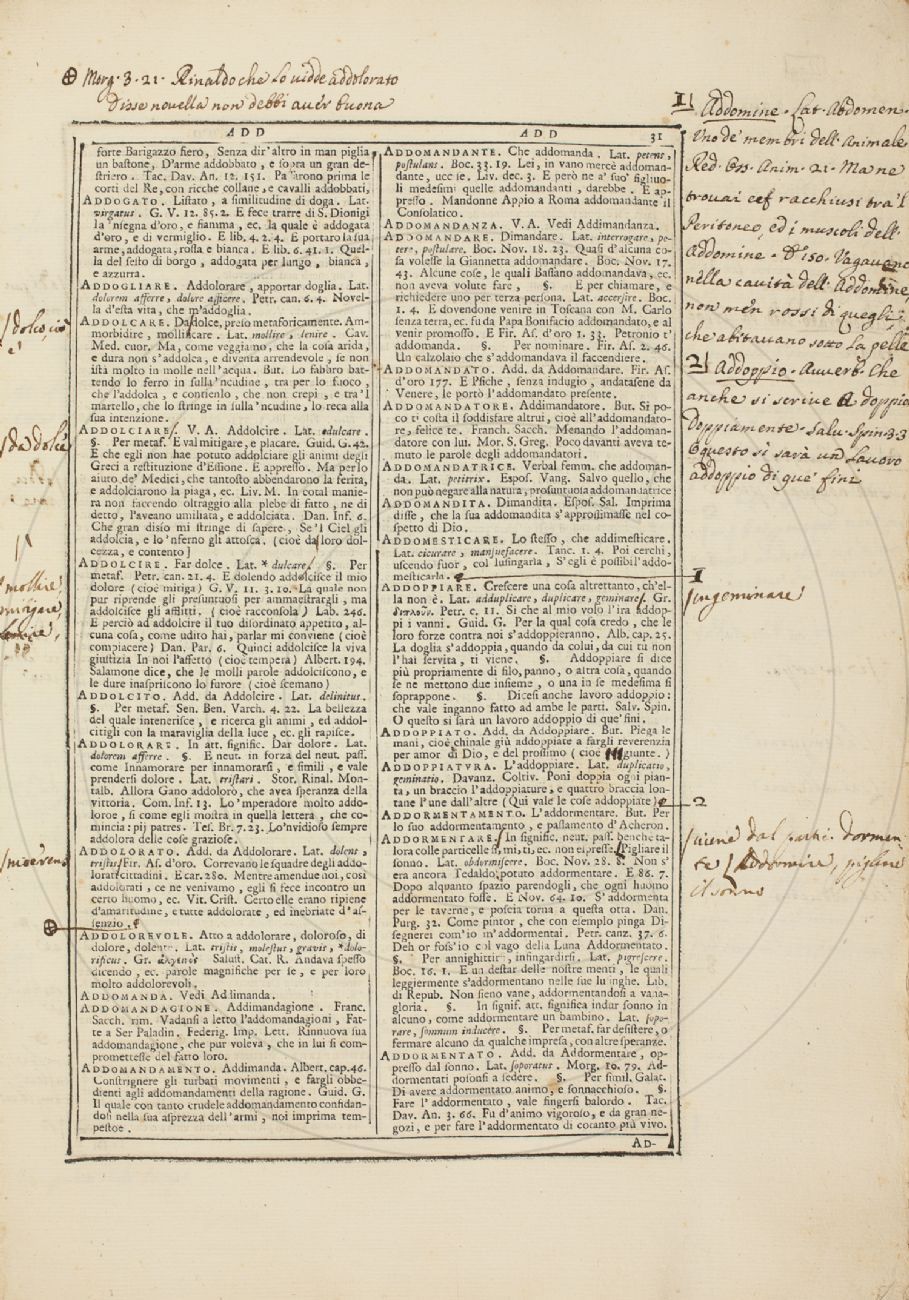 ⊕ Morg. 3. 21. Rinaldo che lo vidde addolorato
Disse novella non debbi aver buona
ADD
forte Barigazzo fiero, Senza dir'altro in man piglia
un bastone, D'arme addobbato, e sopra un gran de-
striero. Tac. Dav. An. 12. 151. Passarono prima le
corti del Re, con ricche collane, e cavalli addobbati,
ADDOGATO. Listato, a similitudine di doga. Lat.
virgatus. G. V. 12. 85. 2. E fece trarre di S. Dionigi
la 'nsegna d'oro, e fiamma, ec. la quale è addogata
d'oro, e di vermiglio. E lib. 4. 2. 4. E portaro la sua
arme, addogata, rossa e bianca. E lib. 6. 41. 1. Quel-
la del sesto di borgo, addogata per lungo, bianca,
e azzurra.
ADDOGLIARE. Addolorare, apportar doglia. Lat.
dolorem afferre, dolore afficere. Petr. can. 6. 4. Novel-
la d'esta vita, che m'addoglia.
ADDOLCARE. Da dolce, preso metaforicamente. Am-
morbidire, mollificare. Lat. mollire, lenire. Cav.
Med. cuor. Ma, come veggiamo, che la cosa arida,
e dura non s'addolca, e diventa arrendevole, se non
istà molto in molle nell'acqua. But. Lo fabbro bat-
tendo lo ferro in sulla 'ncudine, tra per lo fuoco,
che l'addolca, e contienlo, che non crepi, e tra 'l
martello, che lo stringe in sulla 'ncudine, lo reca alla
sua intenzione.
ADDOLCIARE. V. A. Addolcire. Lat. edulcare.
§. Per metaf. E val mitigare, e placare. Guid. G. 42.
E che egli non hae potuto addolciare gli animi degli
Greci a restituzione d'Essione. E appresso. Ma per lo
aiuto de' Medici, che tantosto abbendarono la ferita,
e addolciarono la piaga, ec. Liv. M. In cotal manie-
ra non facendo oltraggio alla plebe di fatto, ne di
detto, l'aveano umiliata, e addolciata. Dan. Inf. 6.
Che gran disio mi stringe di sapere, Se 'l Ciel gli
addolcia, e lo 'nferno gli attosca. (cioè da loro dol-
cezza, e contento)
ADDOLCIRE. Far dolce. Lat. * dulcare. §. Per
metaf. Petr. can. 21. 4. E dolendo addolcisce il mio
dolore (cioè mitiga) G. V. 11. 3. 10. La quale non
pur riprende gli presuntuosi per ammaestrargli, ma
addolcisce gli afflitti. (cioè racconsola) Lab. 246.
E perciò ad addolcire il tuo disordinato appetito, al-
cuna cosa, come udito hai, parlar mi conviene (cioè
compiacere) Dan. Par. 6. Quinci addolcisce la viva
giustizia In noi l'affetto (cioè tempera) Albert. 194.
Salamone dice, che le molli parole addolciscono, e
le dure inaspriscono lo furore (cioè scemano)
ADDOLCITO. Add. da Addolcire. Lat. delinitus.
§. Per metaf. Sen. Ben. Varch. 4. 22. La bellezza
del quale intenerisce, e ricerca gli animi, ed addol-
citigli con la maraviglia della luce, ec. gli rapisce.
ADDOLORARE. In att. signific. Dar dolore. Lat.
dolorem afferre. §. E neut. in forza del neut. pass.
come Innamorare per innamorarsi, e simili, e vale
prendersi dolore. Lat. tristari. Stor. Rinal. Mon-
talb. Allora Gano addolorò, che avea speranza della
vittoria. Com. Inf. 13. Lo 'mperadore molto addo-
loroe, sì come egli mostra in quella lettera, che co-
mincia: pij patres. Tes. Br. 7. 23. Lo 'nvidioso sempre
addolora delle cose graziose.
ADDOLORATO. Add. da Addolorare. Lat. dolens,
tristis. Fir. As. d'oro. Correvano le squadre degli addo-
lorati cittadini. E car. 280. Mentre amendue noi, così
addolorati, ce ne venivamo, egli si fece incontro un
certo huomo, ec. Vit. Crist. Certo elle erano ripiene
d'amaritudine, e tutte addolorate, ed inebriate d'as-
senzio.
⊕
ADDOLOREVOLE. Atto a addolorare, doloroso, di
dolore, dolente. Lat. tristis, molestus, gravis, * dolo-
rificus. Gr. Salust. Cat. R. Andava spesso
dicendo, ec. parole magnifiche per se, e per loro
molto addolorevoli.
ADDOMANDA. Vedi Addimanda.
ADDOMANDAGIONE. Addimandagione. Franc.
Sacch. rim. Vadansi a letto l'addomandagioni, Fat-
te a Ser Paladin. Federig. Imp. Lett. Rinnuova sua
addomandagione, che pur voleva, che in lui si com-
promettesse del fatto loro.
ADDOMANDAMENTO. Addimanda. Albert. cap. 46.
Constrignere gli turbati movimenti, e fargli obbe-
dienti agli addomandamenti della ragione. Guid. G.
Il quale con tanto crudele addomandamento confidan-
dosi nella sua asprezza dell'armi, noi imprima tem-
pestoe.
ADD 31
ADDOMANDANTE. Che addomanda. Lat. petens,
postulans. Boc. 33. 19. Lei, in vano mercè addoman-
dante, uccise. Liv. dec. 3. E però ne a' suo' figliuo-
li medesimi quelle addomandanti, darebbe. E ap-
presso. Mandonne Appio a Roma addomandante il
Consolatico.
ADDOMANDANZA. V. A. Vedi Addimandanza.
ADDOMANDARE. Dimandare. Lat. interrogare, pe-
tere, postulare. Boc. Nov. 18. 23. Quasi d'alcuna co-
sa volesse la Giannetta addomandare. Boc. Nov. 17.
43. Alcune cose, le quali Bassano addomandava, ec.
non aveva volute fare, §. E per chiamare, e
richiedere uno per terza persona. Lat. accersire. Boc.
1. 4. E dovendone venire in Toscana con M. Carlo
senza terra, ec. fu da Papa Bonifacio addomandato, e al
venir promosso. E Fir. As. d'oro 1. 33. Petronio t'
addomanda. §. Per nominare. Fir. As. 2. 46.
Un calzolaio che s'addomandava il faccendiere.
ADDOMANDATO. Add. da Addomandare. Fir. As.
d'oro 177. E Psiche, senza indugio, andatasene da
Venere, le portò l'addomandato presente.
ADDOMANDATORE. Addimandatore. But. Si po-
co ti costa il soddisfare altrui, cioè all'addomandato-
re, felice te. Franch. Sacch. Menando l'addoman-
datore con lui. Mor. S. Greg. Poco davanti aveva te-
muto le parole degli addomandatori.
ADDOMANDATRICE. Verbal femm. che addoman-
da. Lat. petitrix. Espos. Vang. Salvo quello, che
non può negare alla natura, prosuntuosa addomandatrice
ADDOMANDITA. Dimandita. Espos. Sal. Imprima
disse, che la sua addomandita s'approssimasse nel co-
spetto di Dio.
ADDOMESTICARE. Lo stesso, che addimesticare.
Lat. cicurare, mansuefacere. Tanc. 1. 4. Poi cerchi,
uscendo fuor, col lusingarla, S'egli è possibil'addo-
mesticarla.
ADDOPPIARE. Crescere una cosa altrettanto, ch'el-
la non è. Lat. adduplicare, duplicare, geminare. Gr.
διπλοῦν. Petr. c. 11. Si che al mio volo l'ira addop-
pi i vanni. Guid. G. Per la qual cosa credo, che le
loro forze contra noi s'addoppieranno. Alb. cap. 25.
La doglia s'addoppia, quando da colui, da cui tu non
l'hai servita, ti viene. §. Addoppiare si dice
più propriamente di filo, panno, o altra cosa, quando
se ne mettono due insieme, o una in se medesima si
soprappone. §. Dicesi anche lavoro addoppio:
che vale inganno fatto ad ambe le parti. Salv. Spin.
O questo si sarà un lavoro addoppio di que' fini.
ADDOPPIATO. Add. da Addoppiare. But. Piega le
mani, cioè chinale giù addoppiate a fargli reverenzia
per amor di Dio, e del prossimo (cioè giunte.)
ADDOPPIATURA. L'addoppiare. Lat. duplicatio,
geminatio. Davanz. Coltiv. Poni doppia ogni pian-
ta, un braccio l'addoppiature, e quattro braccia lon-
tane l'une dall'altre (Qui vale le cose addoppiate)
ADDORMENTAMENTO. L'addormentare. But. Per
lo suo addormentamento, e passamento d'Acheron.
ADDORMENTARE. In signific. neut. pass. benche ta-
lora colle particelle si, mi, ti, ec. non espresse. Pigliare il
sonno. Lat. obdormiscere. Boc. Nov. 28. 8. Non s'
era ancora Tedaldo potuto addormentare. E 86. 7.
Dopo alquanto spazio parendogli, che ogni huomo
addormentato fosse. E Nov. 64. 10. S'addormenta
per le taverne, e poscia torna a questa otra. Dan.
Purg. 32. Come pintor, che con esemplo pinga Di-
segnerei com'io m'addormentai. Petr. canz. 37. 6.
Deh or foss'io col vago della Luna Addormentato.
§. Per annighittirsi, infingardirsi. Lat. pigrescere.
Boc. 16. 1. E un destar delle nostre menti, le quali
leggiermente s'addormentano nelle sue lusinghe. Lib.
di Repub. Non sieno vane, addormentandosi a vana-
gloria. §. In signif. att. significa indur sonno in
alcuno, come addormentare un bambino. Lat. sopo-
rare, somnum inducere. §. Per metaf. far desistere, o
fermare alcuno da qualche impresa, con altre speranze.
ADDORMENTATO. Add. da Addormentare, op-
presso dal sonno. Lat. soporatus. Morg. 10. 79. Ad-
dormentati posonsi a sedere. §. Per simil. Galat.
Di avere addormentato animo, e sonnacchioso. §.
Fare l'addormentato, vale fingersi balordo. Tac.
Dav. An. 3. 66. Fu d'animo vigoroso, e da gran ne-
gozi, e per fare l'addormentato di cotanto più vivo.
AD-
1/ Addomine. Lat. Abdomen.
Uno de' membri dell'Animale
Red. Oss. Anim. 21. Ma ne
trovai racchiusi tra 'l
Peritoneo, ed i muscoli dell'
Addomine. D'iso. Vagavano
nella cavità dell'Addomine,
non men rossi di quegli,
che abitavano sotto la pelle
2/ Addoppio. Avverb. Che
anche si scrive A doppio
Doppiamente. Salv. Spin. 33
O questo si sarà un Lavoro
addoppio di que' fini
1
/ingeminare
2
/viene dal dormen
te / Addormire, pigliare
il sonno
/mollire,